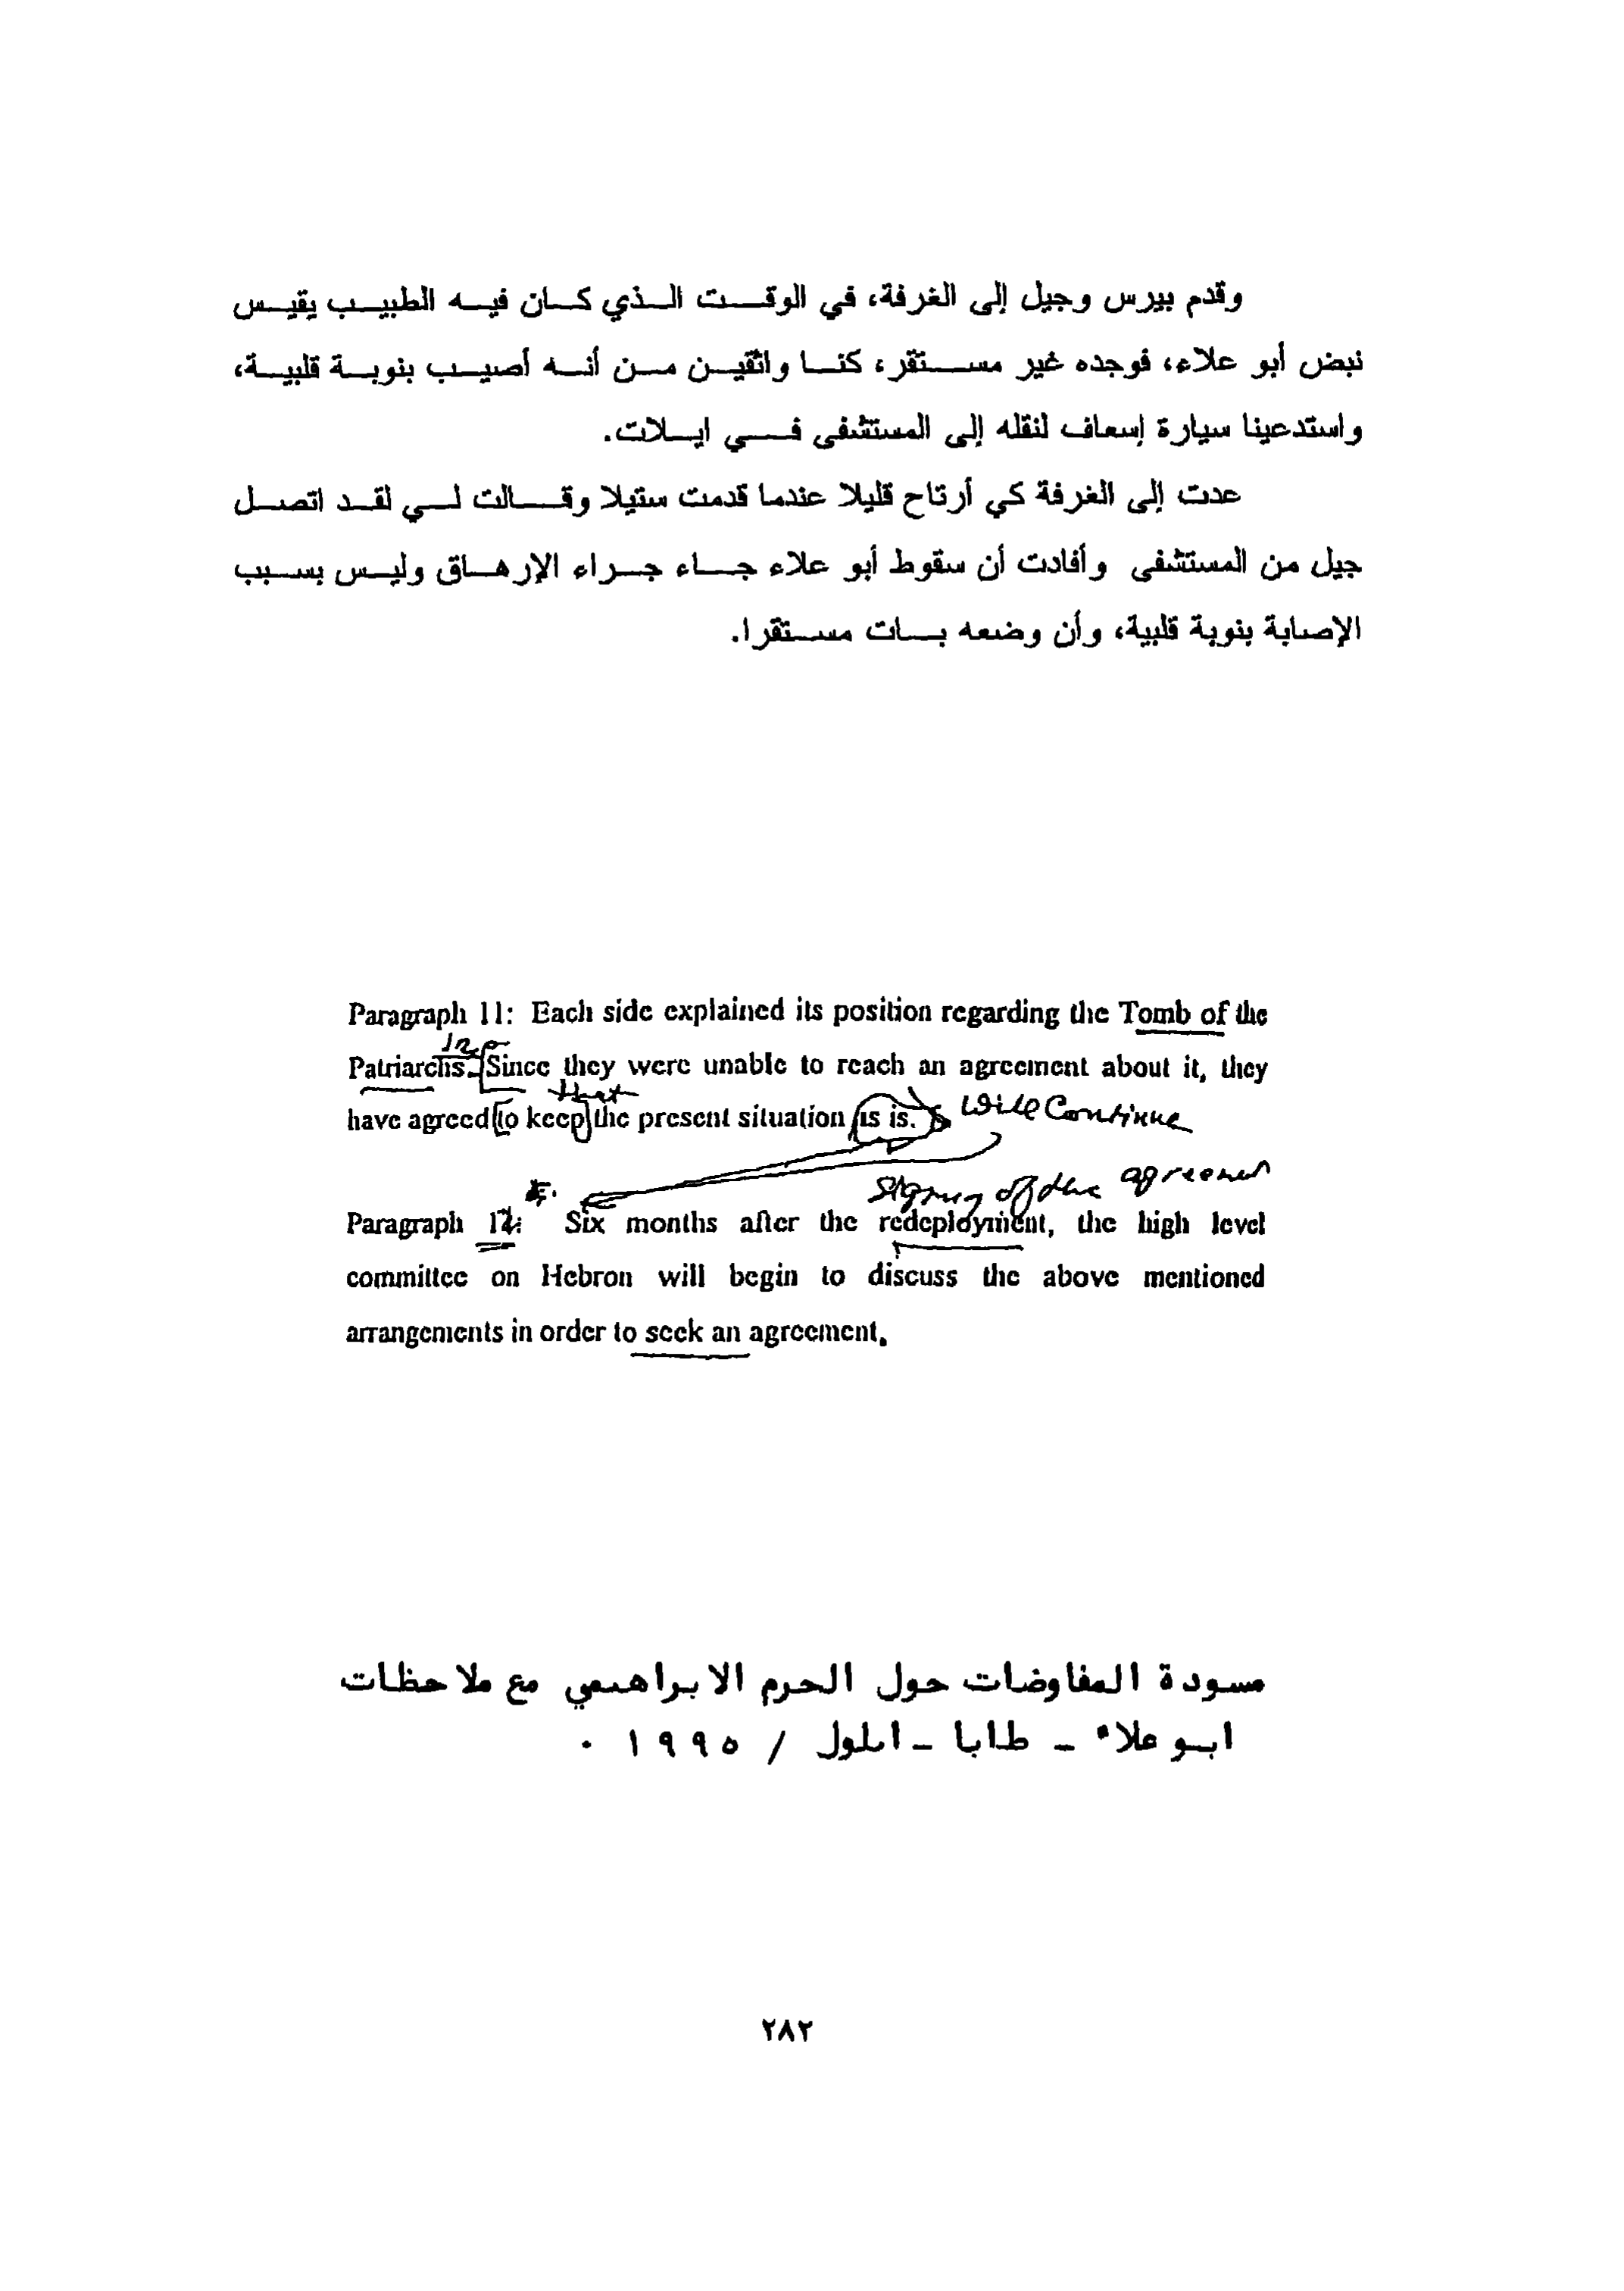 وقدم بيرس وجيل إلى الغرفة، في الوقت الذي كان فيه الطبيب يقيس
نبض أبو علاء، فوجده غير مستقر، كنا واثقين من أنه أصيب بنوبة قلبية،
واستدعينا سيارة إسعاف لنقله إلى المستشفى في ايلات.
عدت إلى الغرفة كي أرتاح قليلا عندما قدمت ستيلا وقالت لي لقد اتصل
جيل من المستشفى وأفادت أن سقوط أبو علاء جاء جراء الإرهاق وليس بسبب
الإصابة بنوبة قلبية، وأن وضعه بات مستقرا.
Paragraph 11: Each side explained its position regarding the Tomb of the
Patriarchs. Since they were unable to reach an agreement about it, they
that
have agreed to keep the present situation as is. will continue
signing of the agreement
Paragraph 12: Six months after the redeployment, the high level
committee on Hebron will begin to discuss the above mentioned
arrangements in order to seek an agreement.
مسودة المفاوضات حول الحرم الابراهيمي مع ملاحظات
ابو علاء - طابا - ايلول / ١٩٩٥ .
٢٨٢